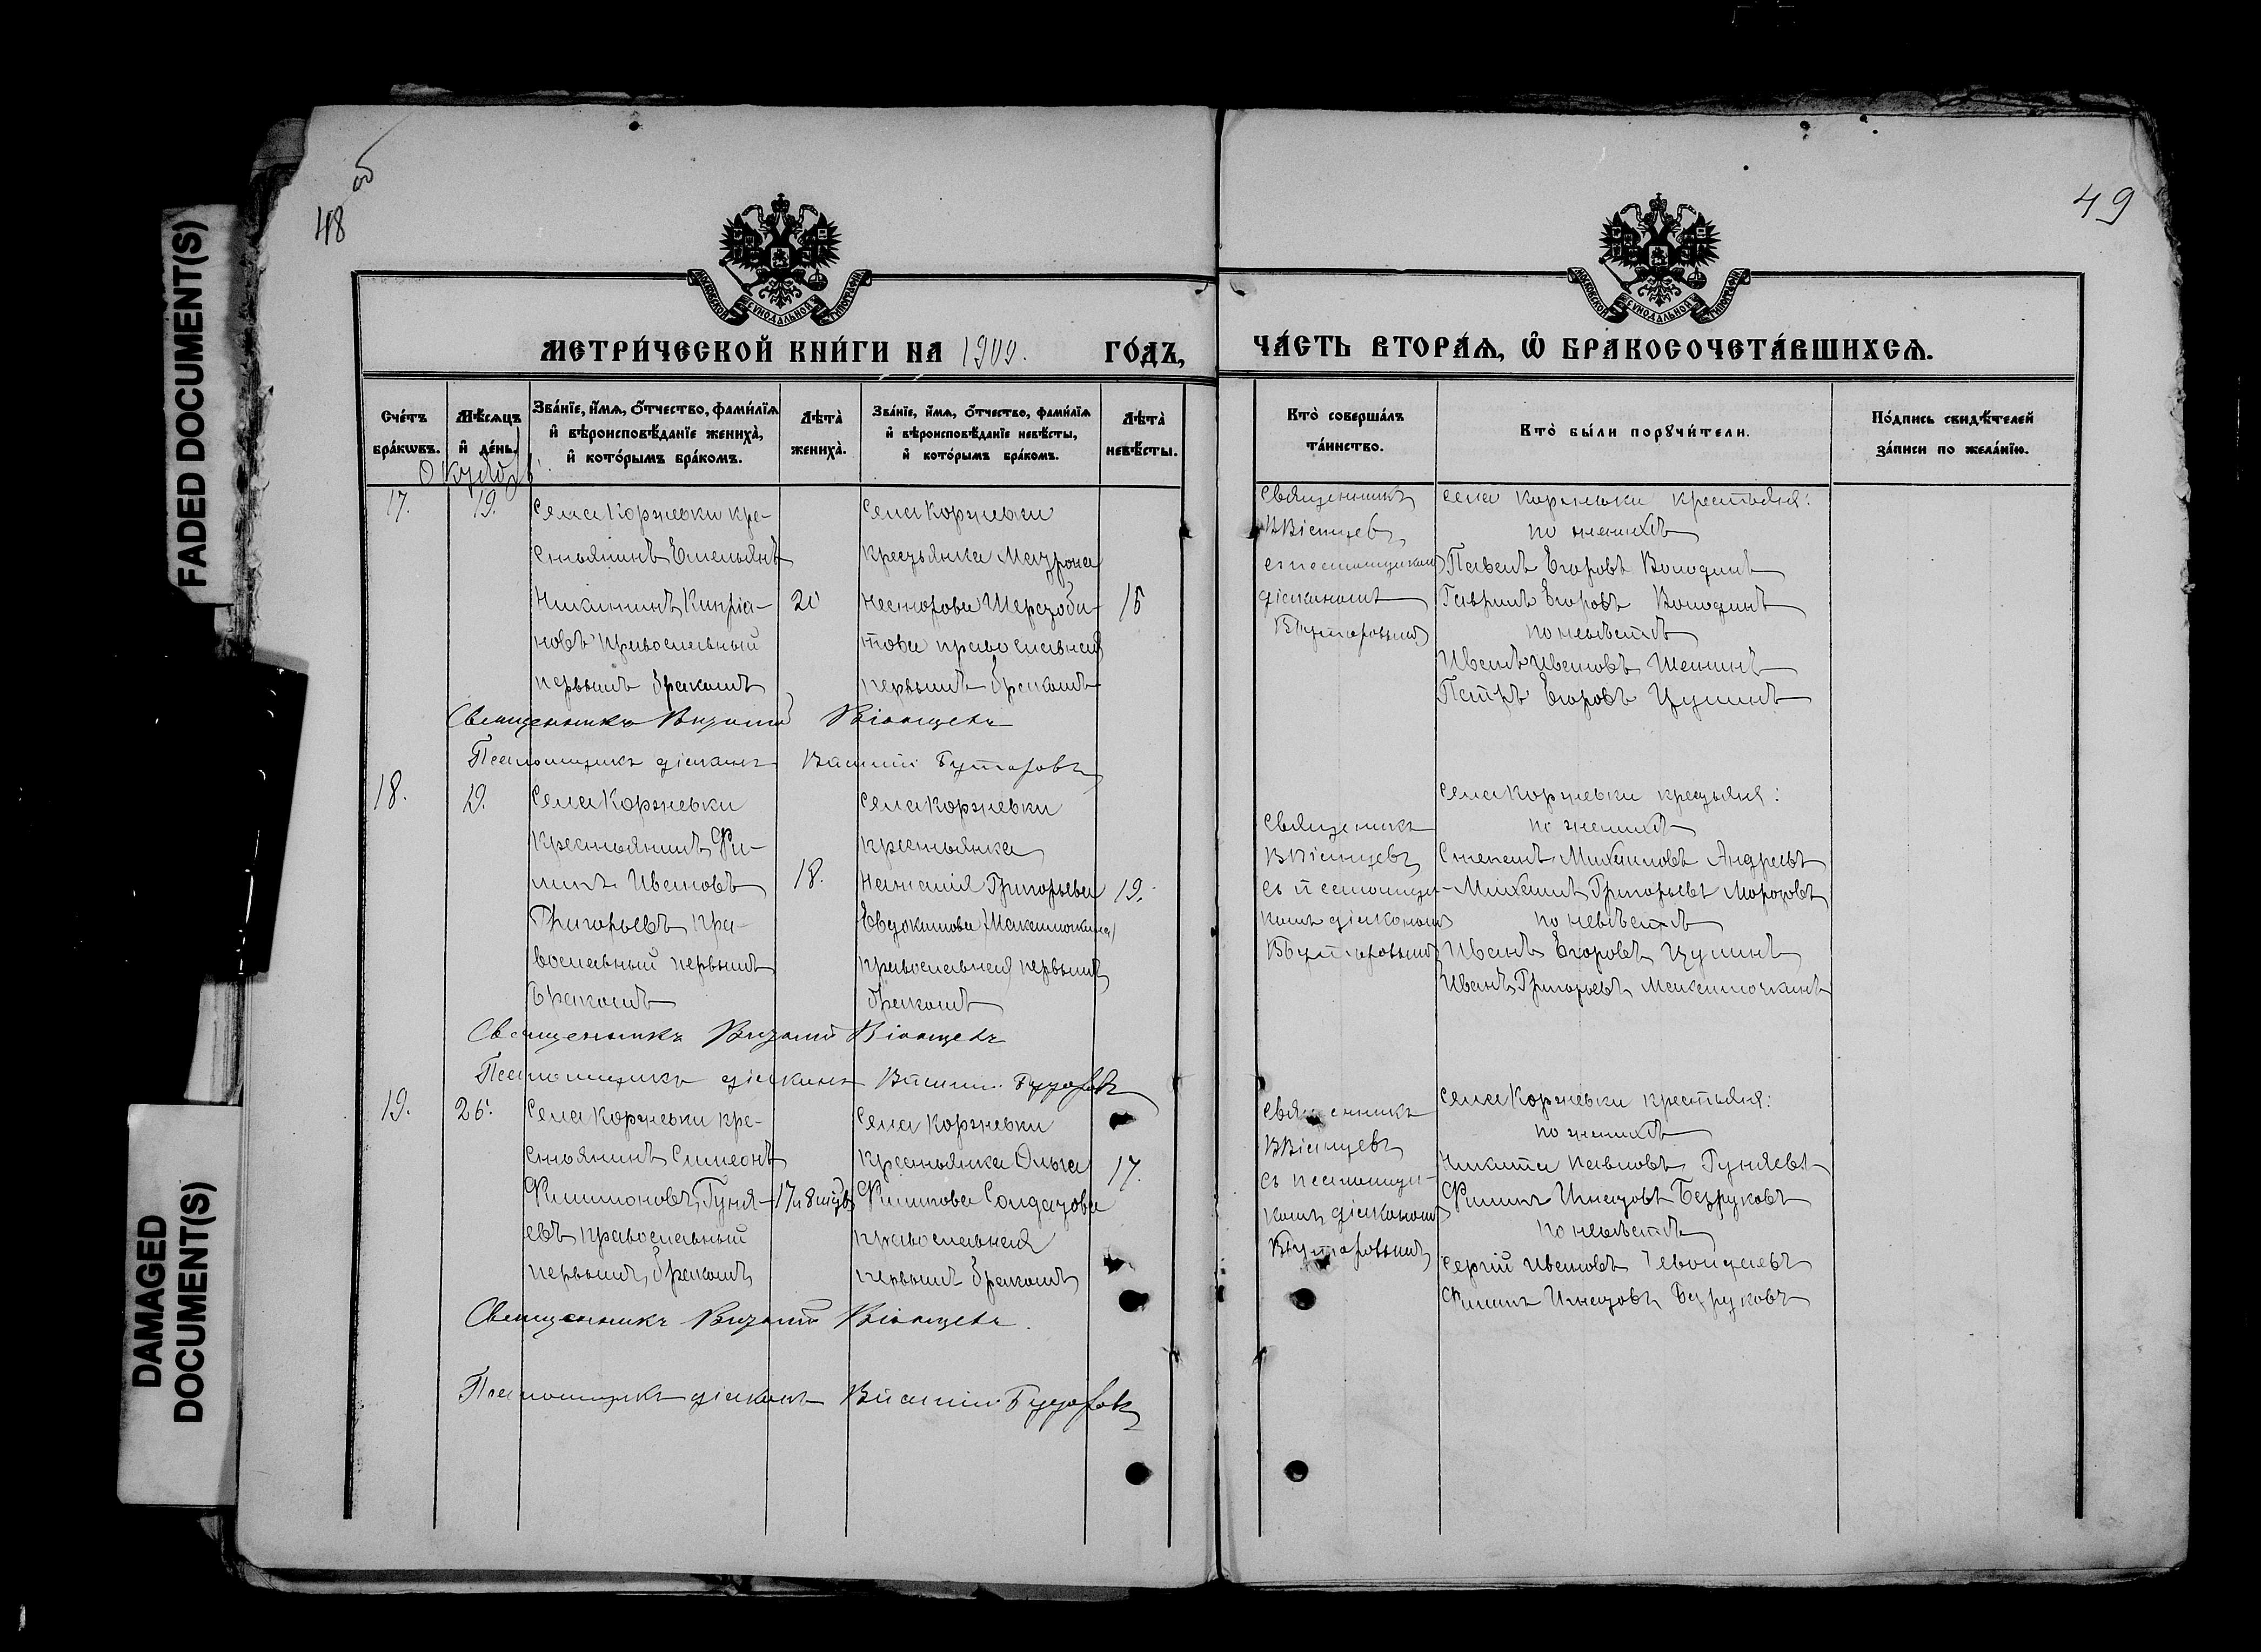 FADED DOCUMENT(S)
DAMAGED DOCUMENT(S)
об
48
МОСКОВСКОЙ СѴНОДАЛЬНОЙ ТИПОГРАФІИ
МЕТРИ́ЧЕСКОЙ КНИ́ГИ НА 1909. ГО́ДЪ,
Сче́тъ бра́кѡвъ.
Мѣ́сяцъ и҆ де́нь.
Зва́нїе, и҆́мѧ, ѻ҆́тчество, фами́лїѧ и҆ вѣроисповѣ́данїе жениха̀, и҆ кото́рымъ бра́комъ.
Лѣ́та̀ жениха̀.
Зва́нїе, и҆́мѧ, ѻ҆́тчество, фами́лїѧ и҆ вѣроисповѣ́данїе невѣ́сты, и҆ кото́рымъ бра́комъ.
Лѣ́та̀ невѣ́сты.
Октябрь.
17.
19.
Села Коржевки кре-
стьянинъ Емельянъ
Никитинъ Кипріа-
новъ православный
первымъ бракомъ
20
Села Коржевки
крестьянка Матрона
Несторова Шерстоби-
това православная
первымъ бракомъ
16
Священникъ
Псаломщикъ діаконъ Василій Бутаровъ
18.
19.
Села Коржевки
крестьянинъ Фи-
липпъ Ивановъ
Григорьевъ пра-
вославный первымъ
бракомъ
18.
Села Коржевки
крестьянка
Наталія Григорьева
Евдокимова (Максимочкина)
православная первымъ
бракомъ
19.
Священникъ
Псаломщикъ діаконъ Василій Бутаровъ
19.
26.
Села Коржевки кре-
стьянинъ Симеонъ
Филимоновъ Гуня-
евъ православный
первымъ бракомъ
17 и 8 мѣс.
Села Коржевки
крестьянка Ольга
Филиппова Солдатова
православная
первымъ бракомъ
17.
Священникъ
Псаломщикъ діаконъ Василій Бутаровъ
49
МОСКОВСКОЙ СѴНОДАЛЬНОЙ ТИПОГРАФІИ
ЧА́СТЬ ВТОРА́Ѧ, Ѡ҆ БРАКОСОЧЕТА́ВШИХСѦ.
Кто̀ соверша́лъ та́инство.
Кто̀ бы́ли порꙋчи́тели.
По́дпись свидѣ́телей за́писи по жела́нїю.
Священникъ
съ псаломщикомъ
діакономъ
В Бутаровымъ
Села Коржевки крестьяне:
по женихѣ
Павелъ Егоровъ Володинъ
Гавріилъ Егоровъ Володинъ
по невѣстѣ
Иванъ Ивановъ Шенинъ
Петръ Егоровъ Цупинъ
Священникъ
съ псаломщи-
комъ діакономъ
В Бутаровымъ
Села Коржевки крестьяне:
по женихѣ
Степанъ Михайловъ Андреевъ
Михаилъ Григорьевъ Морозовъ
по невѣстѣ
Иванъ Егоровъ Цупинъ
Иванъ Григорьевъ Максимочкинъ
Священникъ
съ псаломщи-
комъ діакономъ
В Бутаровымъ
Села Коржевки крестьяне:
по женихѣ
Никита Павловъ Гуняевъ
Филиппъ Игнатовъ Безруковъ
по невѣстѣ
Сергій Ивановъ
Филиппъ Игнатовъ Безруковъ